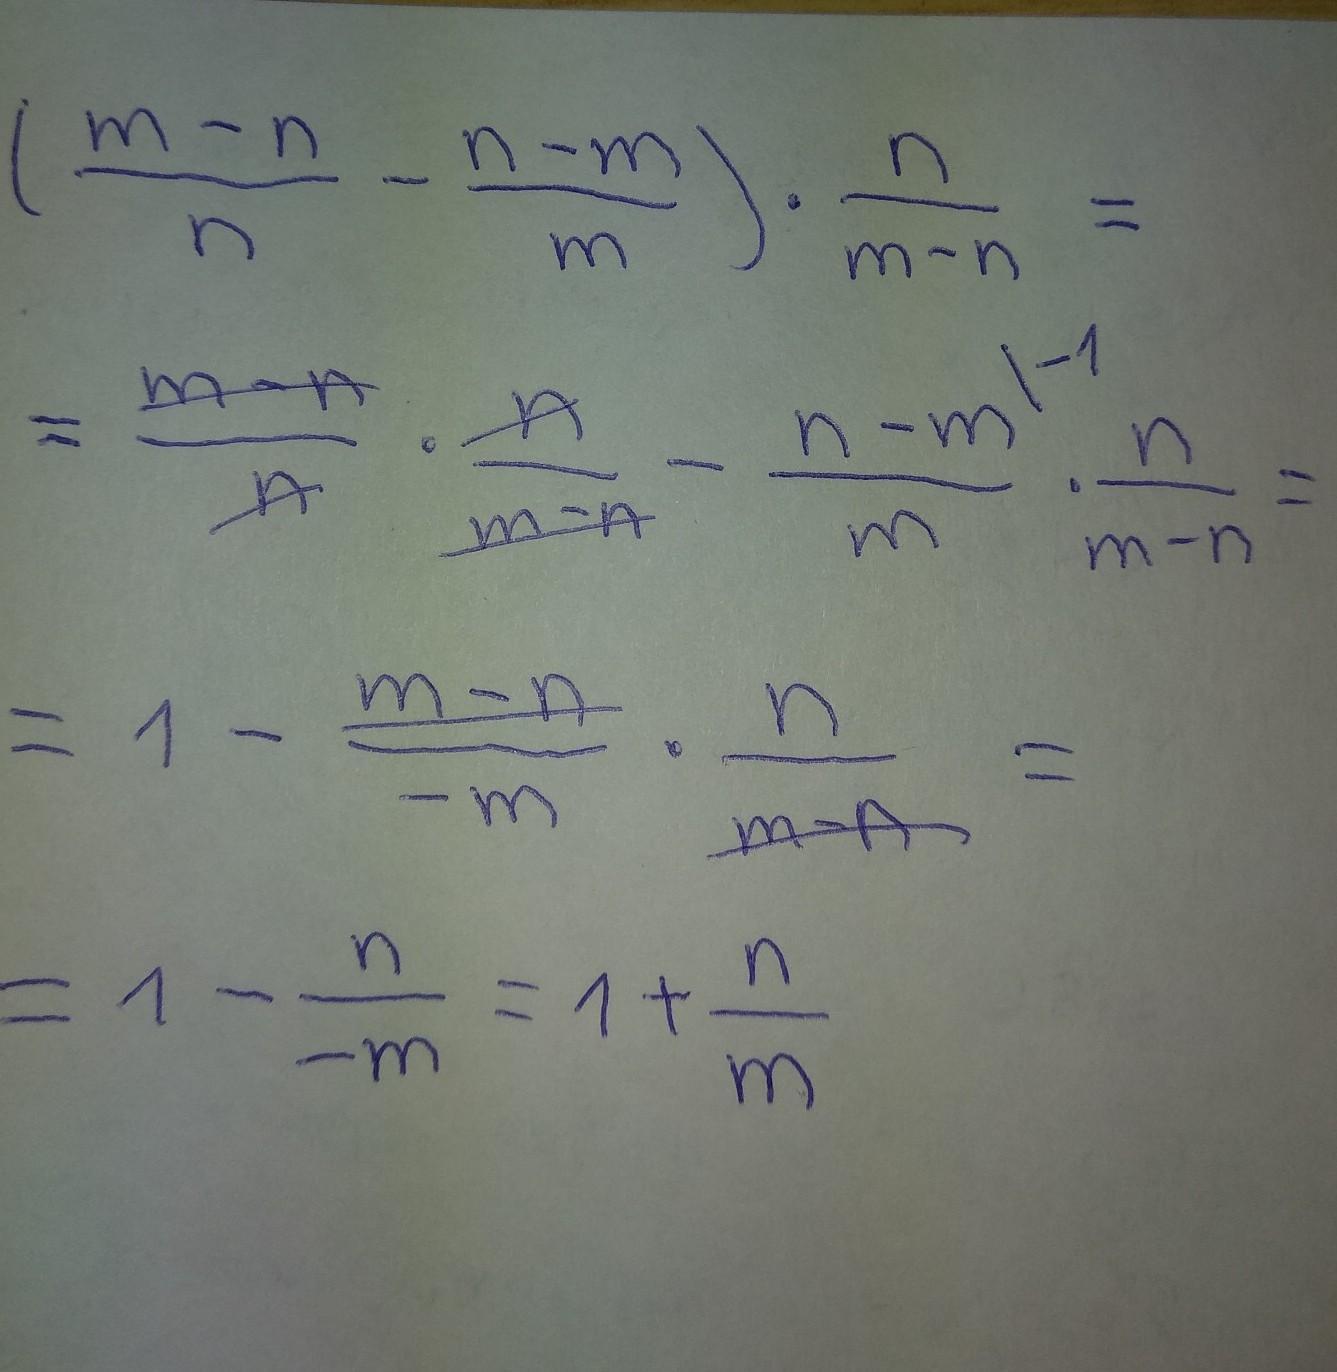 ( m - n / n - n - m / m ) · n / m - n =
= m - n / n · n / m - n - n - m |-1 / m · n / m - n =
= 1 - m - n / -m · n / m - n =
= 1 - n / -m = 1 + n / m